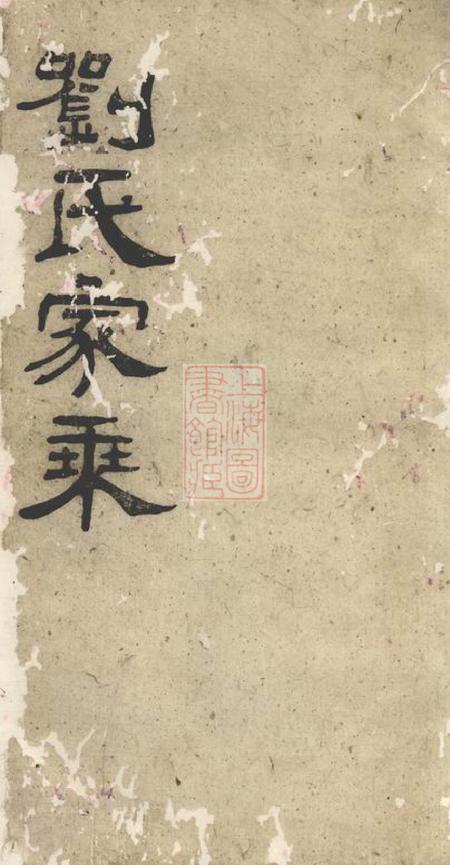 劉氏家乘
上海圖
書館藏